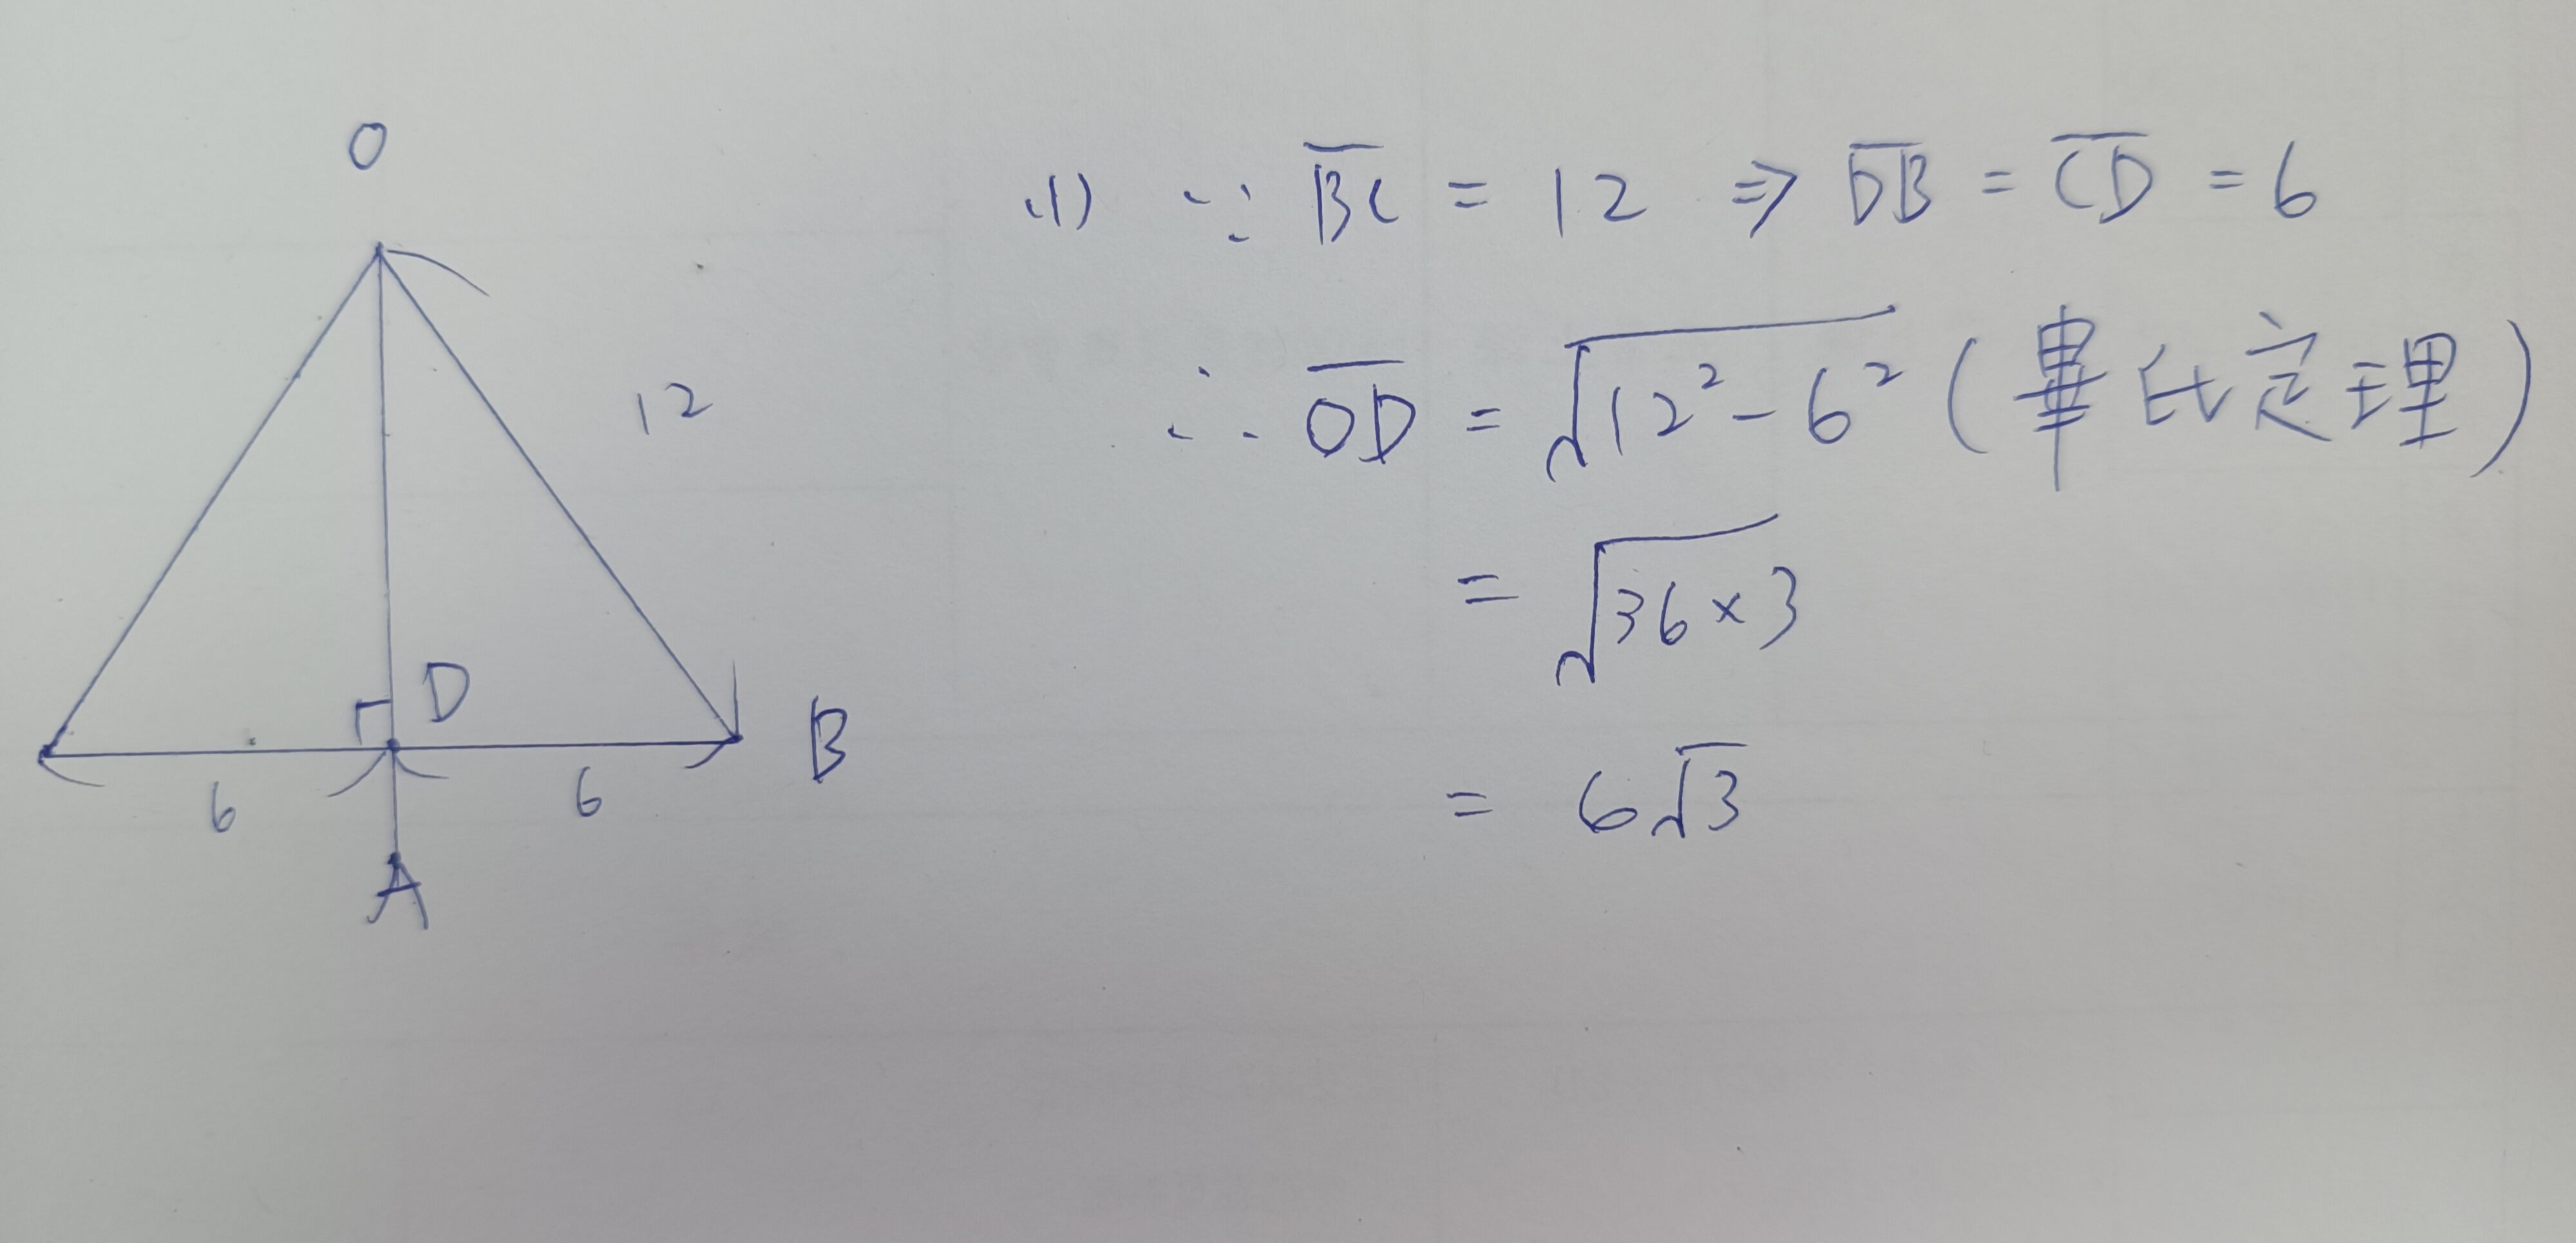 O
12
D
B
6
6
A
(1) ∵ B̅C̅ = 12 ⇒ D̅B̅ = C̅D̅ = 6
∴ O̅D̅ = √(12² - 6²) (畢氏定理)
= √(36×3)
= 6√3